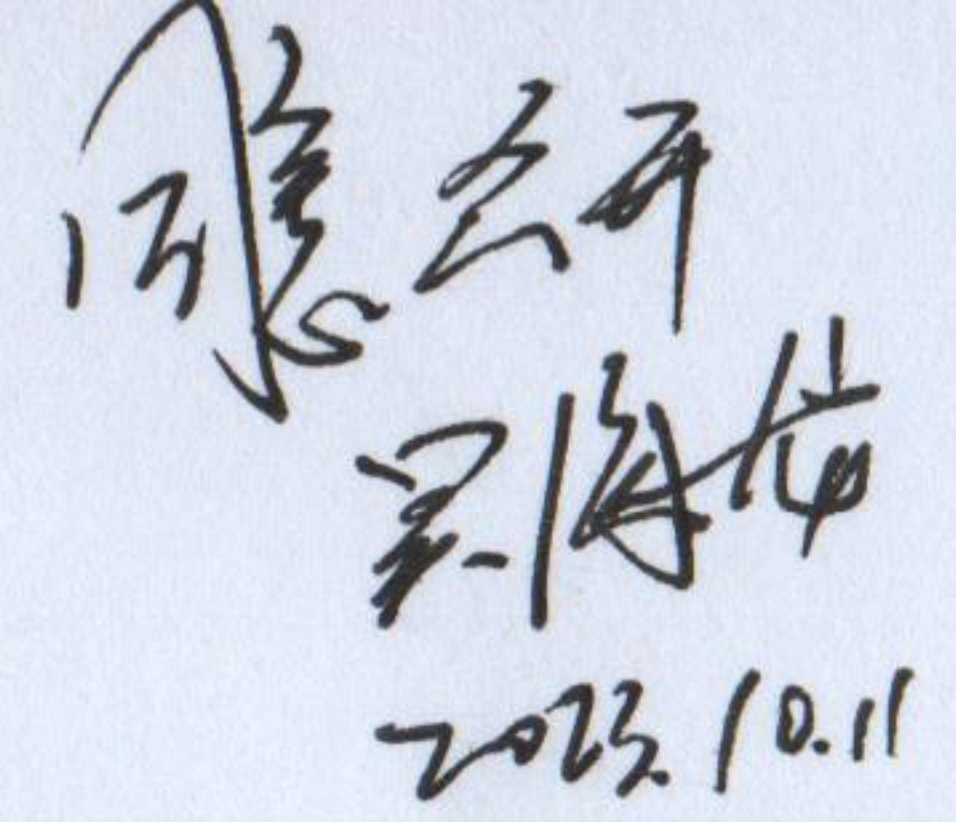 同意公开
吴海
2023.10.11